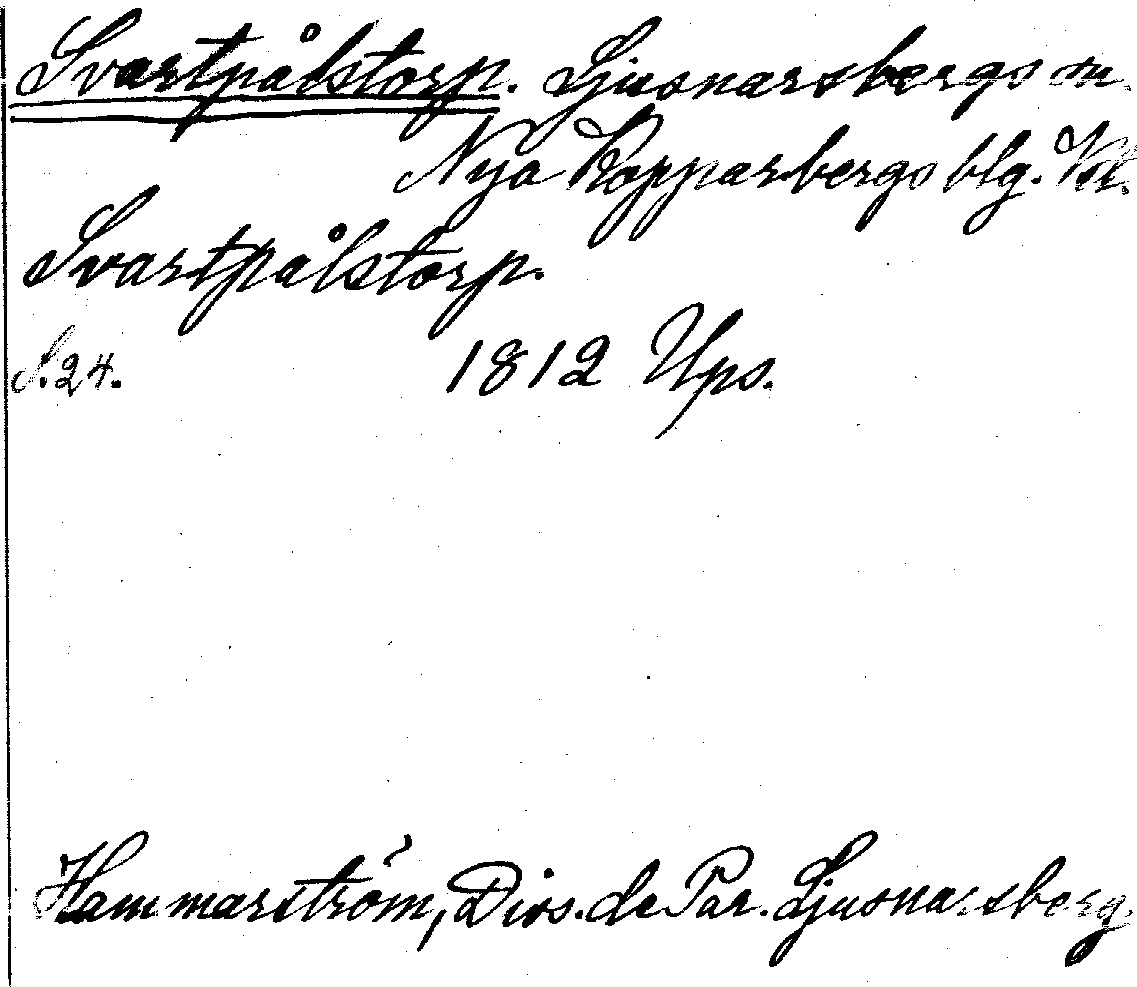 Svartpålstorp. Ljusnarsbergs sn.
Nya Kopparbergs blg. Vstm.
Svartpålstorp.
S. 24. 1812 Ups.
Hammarström, Diss. de Par. Ljusnarsberg.